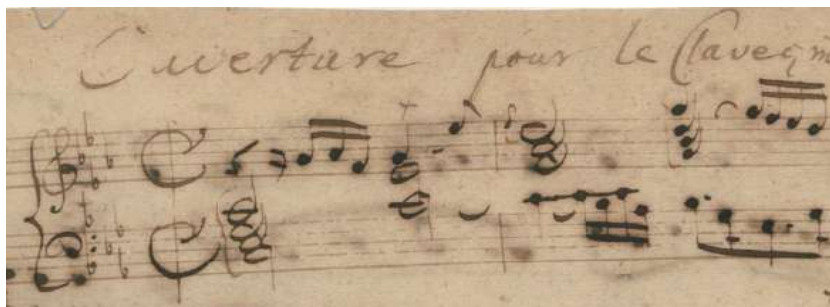 Ouverture pour le Claveçin